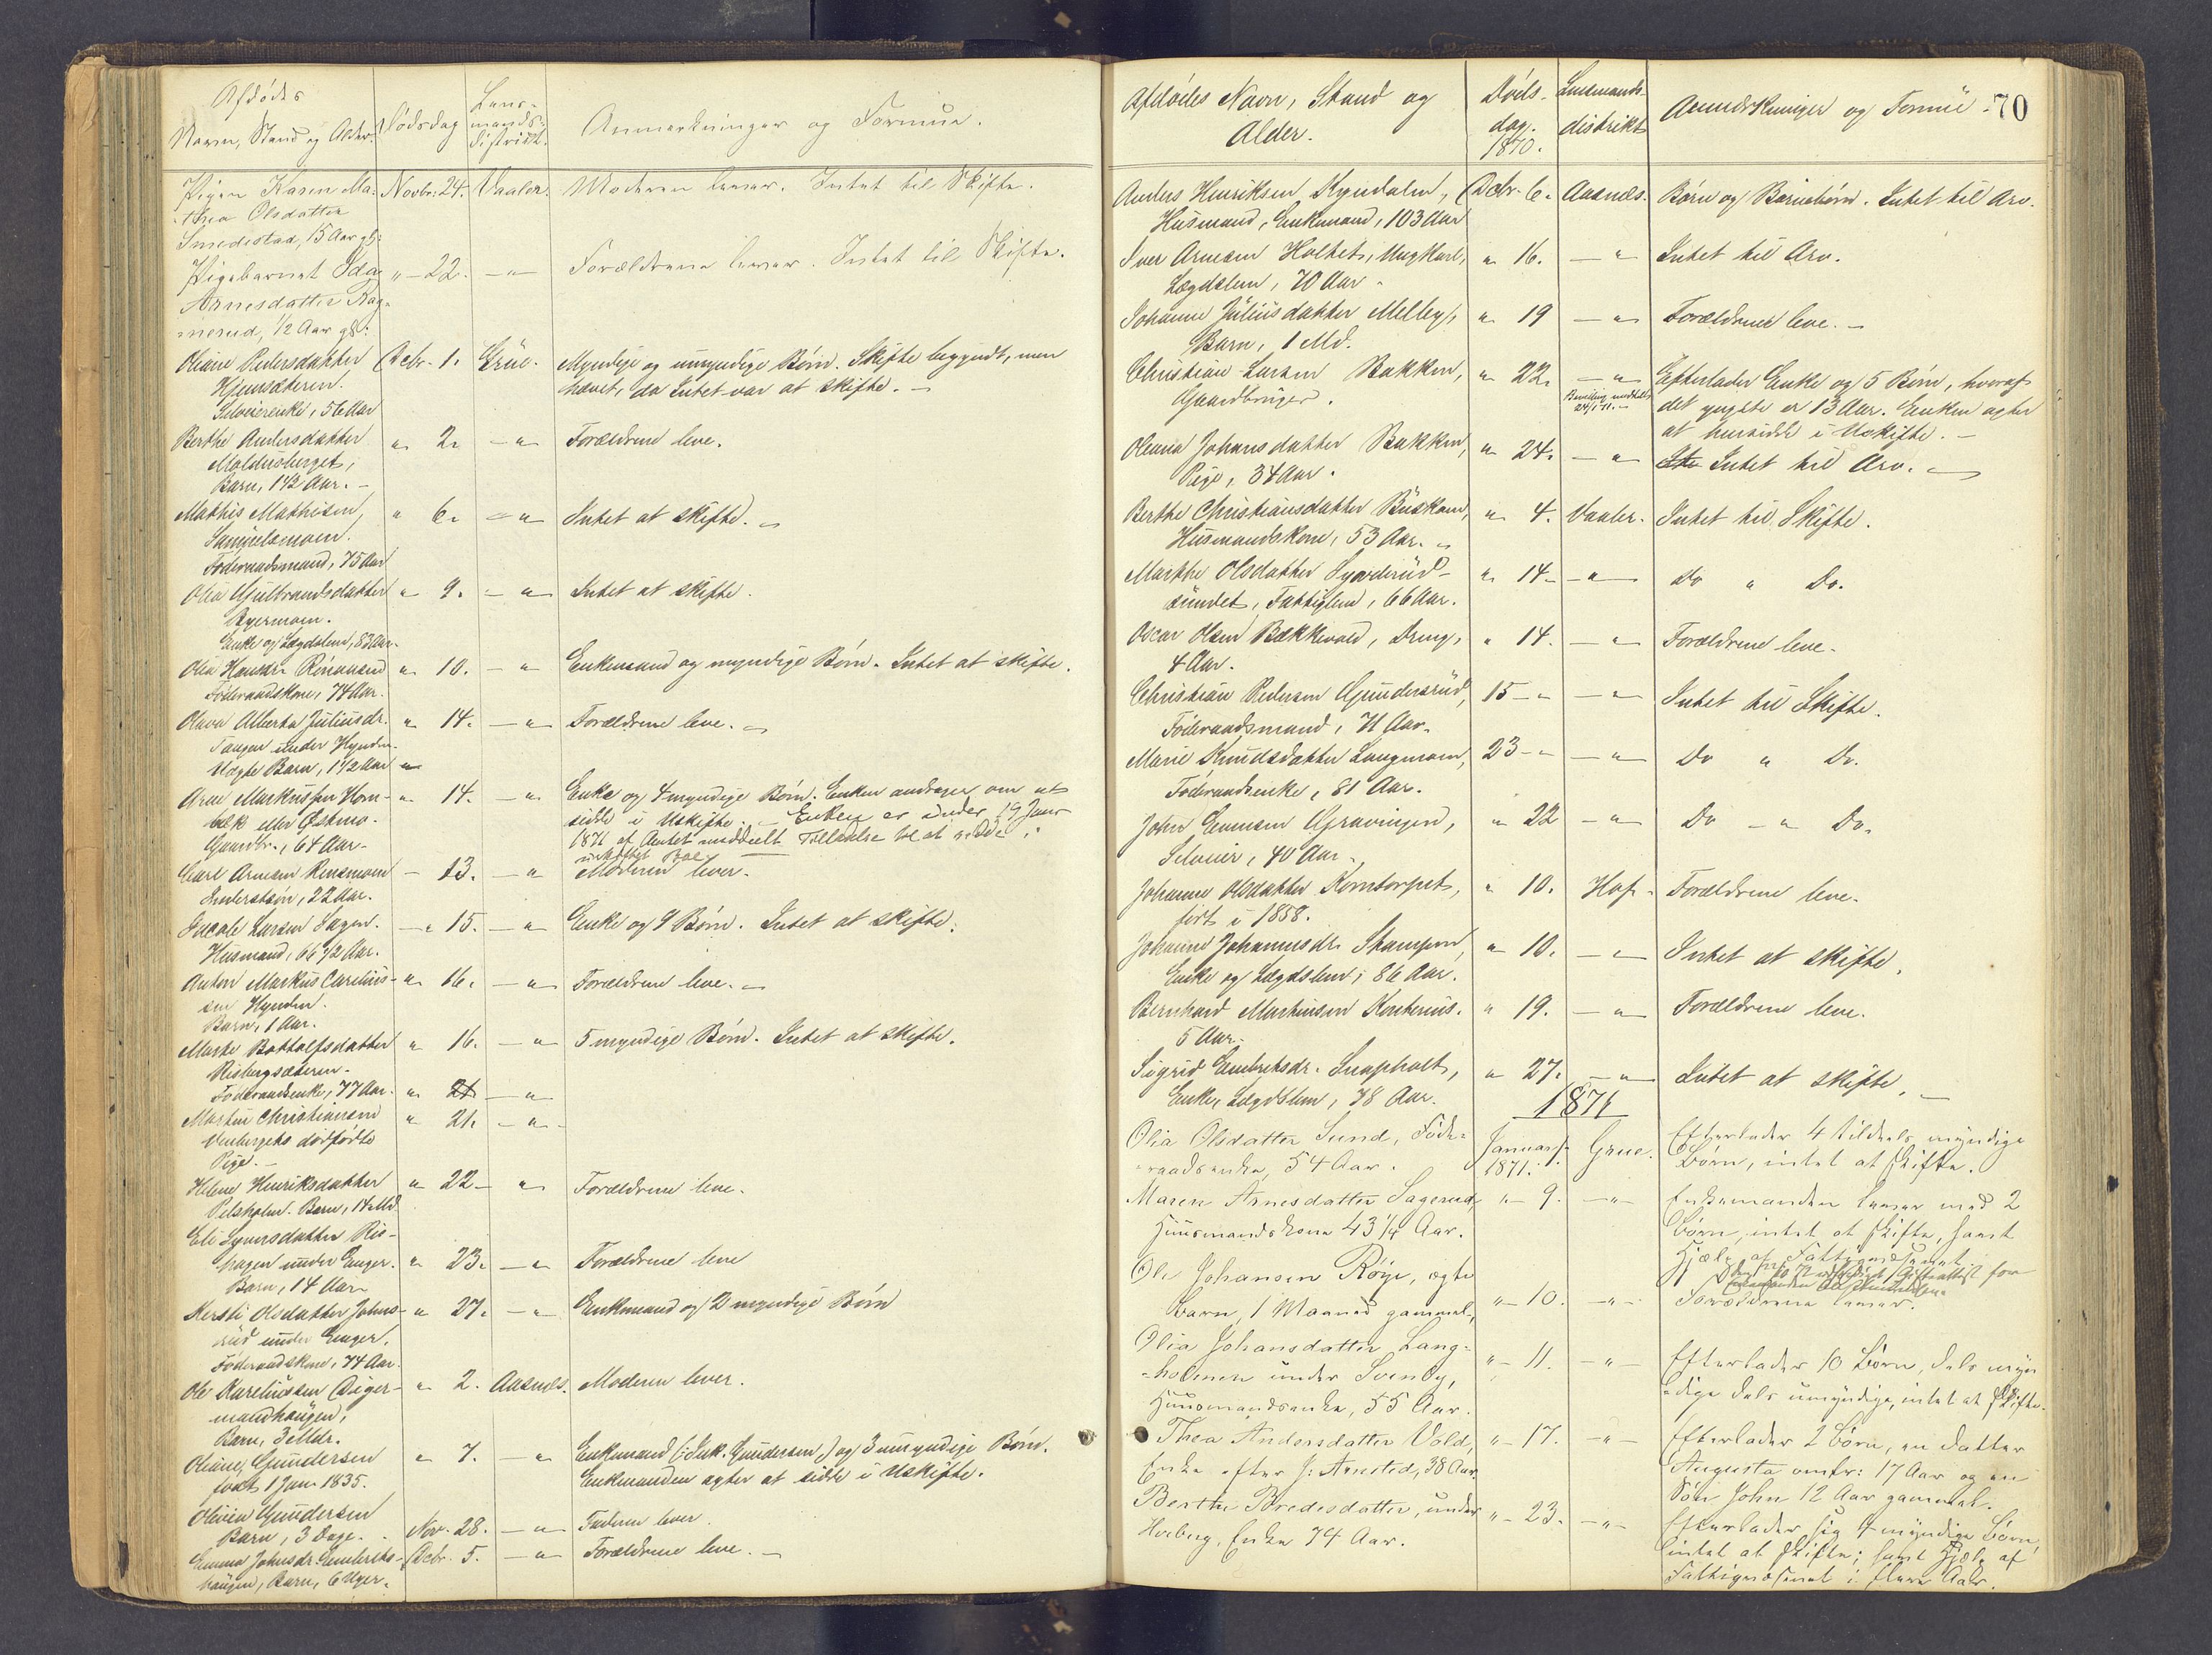 Afdødes
Navn, Stand og Alder.
Dødsdag
Lens-
mands-
distrikt.
Anmærkninger og Formue.
Pigen Karen Ma- Novbr. 24. Vaaler. Moderen lever. Intet til Skifte.
thea Olsdatter
Smedestad, 15 Aar gl:
Pigebarnet Ida " - 22. - " - Forældrene lever. Intet til Skifte.
Arnesdatter Rag-
nerud, 1/2 Aar gl:
Oliane Pedersdatter Debr. 1. Grue. Myndige og umyndige Børn. Skifte begyndt, men
Hjernsæteren. hævet, da Intet var at skifte. -
Selveierenke, 56 Aar
Berthe Andersdatter " 2. - " - Forældrene leve.
Moldusberget,
Barn, 1 1/2 Aar. -
Mathis Mathisen, " 6. - " - Intet at skifte. -
Samuelsmoen.
Føderaadsmand, 75 Aar
Olia Gulbrandsdatter " 9. - " - Intet at skifte.
Øyermoen.
Enke og Lægdslem, 83 Aar.
Olia Hansdr. Rønaasen " 10. - " - Enkemand og myndige Børn. Intet at skifte.
Føderaadskone, 74 Aar.
Olava Alberta Juliusdr. " 14. - " - Forældrene leve. -
Tangen under Hynden.
Uægte Barn, 1 1/2 Aar
Arne Markussen Horn- " 14. - " - Enke og 4 myndige Børn. Enken andrager om at
bæk eller Østmo. sidde i Uskifte. - Enken er under 19 Janr
Gaardbr., 64 Aar - 1871 af Amtet meddeelt Tilladelse til at sidde i
uskiftet Bo.
Carl Arnesen Rensmoen - 13. - " Moderen lever.
Inderstsøn, 22 Aar.
Jacob Larsen Sagen. - " 15. - " - Enke og 9 Børn. Intet at skifte.
Husmand, 66 1/2 Aar.
Anton Markus Carelius- " 16. - " - Forældrene leve. -
sen Hynden.
Barn, 1 Aar.
Marte Bottolfsdatter " 16. - " - 5 myndige Børn. Intet at skifte.
Risbergsæteren.
Føderaadsenke, 77 Aar. " 21 - " -
Martin Christiansen " 21. - " -
Venbergets dødfødte
Pige. -
Helene Henriksdatter " 22 - " - Forældrene leve.
Pelsholen. Barn, 14 Md.
Eli Syversdatter Ris-
hagen under Enger. " 23. - " - Forældrene leve
Barn, 14 Aar
Kersti Olsdatter Johns- " 27. - " - Enkemand og 2 myndige Børn
rud under Enger.
Føderaadskone, 74 Aar.
Ole Kareliussen Diger- " 2. Aasnes. Moderen lever.
mandhaugen,
Barn, 3 Mdr.
Oliane Gundersen " 7. - " - Enkemand (: Insk. Gundersen,) og 3 umyndige Børn.
født 1 Jan 1835. Enkemanden agter at sidde i Uskifte.
Olivia Gundersen
Barn, 3 Dage. Nov. 28. - " - Faderen lever.
Emma Johnsdr. Embrets- Debr. 5. - " - Forældrene leve. -
haugen, Barn, 6 Uger.
Afdødes Navn, Stand og
Alder.
Døds-
dag.
1870.
Lensmands-
distrikt
Anmærkninger og Formue -
70
Anders Henriksen Kyndalen, Debr. 6. Aasnes. Børn og Børnebørn. Intet til Arv.
Husmand, Enkemand, 103 Aar
Iver Arnesen Holtet, Ungkarl, " 16. - " Intet til Arv.
Lægdslem, 70 Aar.
Johanne Juliusdatter Melby, " 19 - " Forældrene leve. -
Barn, 1 Md.
Christian Larsen Bakken, " 22. - " Efterlader Enke og 5 Børn, hvoraf
Gaardbruger. Bevilling meddelt 24/1 71. - det yngste er 13 Aar. Enken agter
at hensidde i Uskifte. -
Oleana Johansdatter Bakken, " 24. - " Intet til Arv. -
Pige, 34 Aar.
Berthe Christiansdatter Buskom, " 4. Vaaler. Intet til Skifte.
Husmandskone, 53 Aar. -
Marthe Olsdatter Syverud- " 14 - - " - Do " Do.
sundet, Fattiglem, 66 Aar.
Oscar Olsen Bækkevold, Dreng, " 14. - " Forældrene leve.
4 Aar.
Christian Pedersen Gundersrud, 15 - " - " Intet til Skifte.
Føderaadsmand, 71 Aar.
Marie Knudsdatter Langmoen, 23 - " - " - Do " Do.
Føderaadsenke, 81 Aar.
John Evensen Gravingen, " 22 - " Do - " Do.
Selveier, 40 Aar.
Johanne Olsdatter Korntorpet, " 10. Hof. Forældrene leve.
født i 1858.
Johanne Johannesdr. Stampen, " 10. - " Intet at skifte.
Enke og Lægdslem, 86 Aar.
Bernhard Martinsen Kontenus. " 19. - " Forældrene leve.
5 Aar.
Sigrid Embretsdr. Snapholt, " 27. - " Intet at skifte. -
Enke, Lægdslem, 78 Aar.
1871
Olia Olsdatter Sund, Føde- Januar 1. Grue. Efterlader 4 tildeels myndige
raadsenke, 54 Aar. 1871. Børn, intet at skifte.
Maren Arnesdatter Sagerud, " - 9. - " - Enkemanden lever med 2
Huusmandskone 43 1/4 Aar. Børn, intet at skifte, samt
Hjælp af Fattigvæsenet
Ole Johansen Røye, ægte
Barn, 1 Maaned gammel, " - 10. - " - Forældrene lever.
Olia Johansdatter Lang- " - 11. - " - Efterlader 10 Børn, dels myn
holmen under Svenby, dige dels umyndige, intet at skifte.
Huusmandsenke, 55 Aar.
Thea Andersdatter Vold, " - 17. - " - Efterlader 2 Børn, en datter
Enke efter J: Arnsted, 38 Aar. Augusta omtr: 17 Aar og en
Søn John 12 Aar gammel.
Berthe Bredesdatter, under " - 23. - " - Efterlader sig 4 myndige Børn,
Horberg, Enke 74 Aar. intet at skifte; samt Hjælp af
Fattigvæsenet i flere Aar.